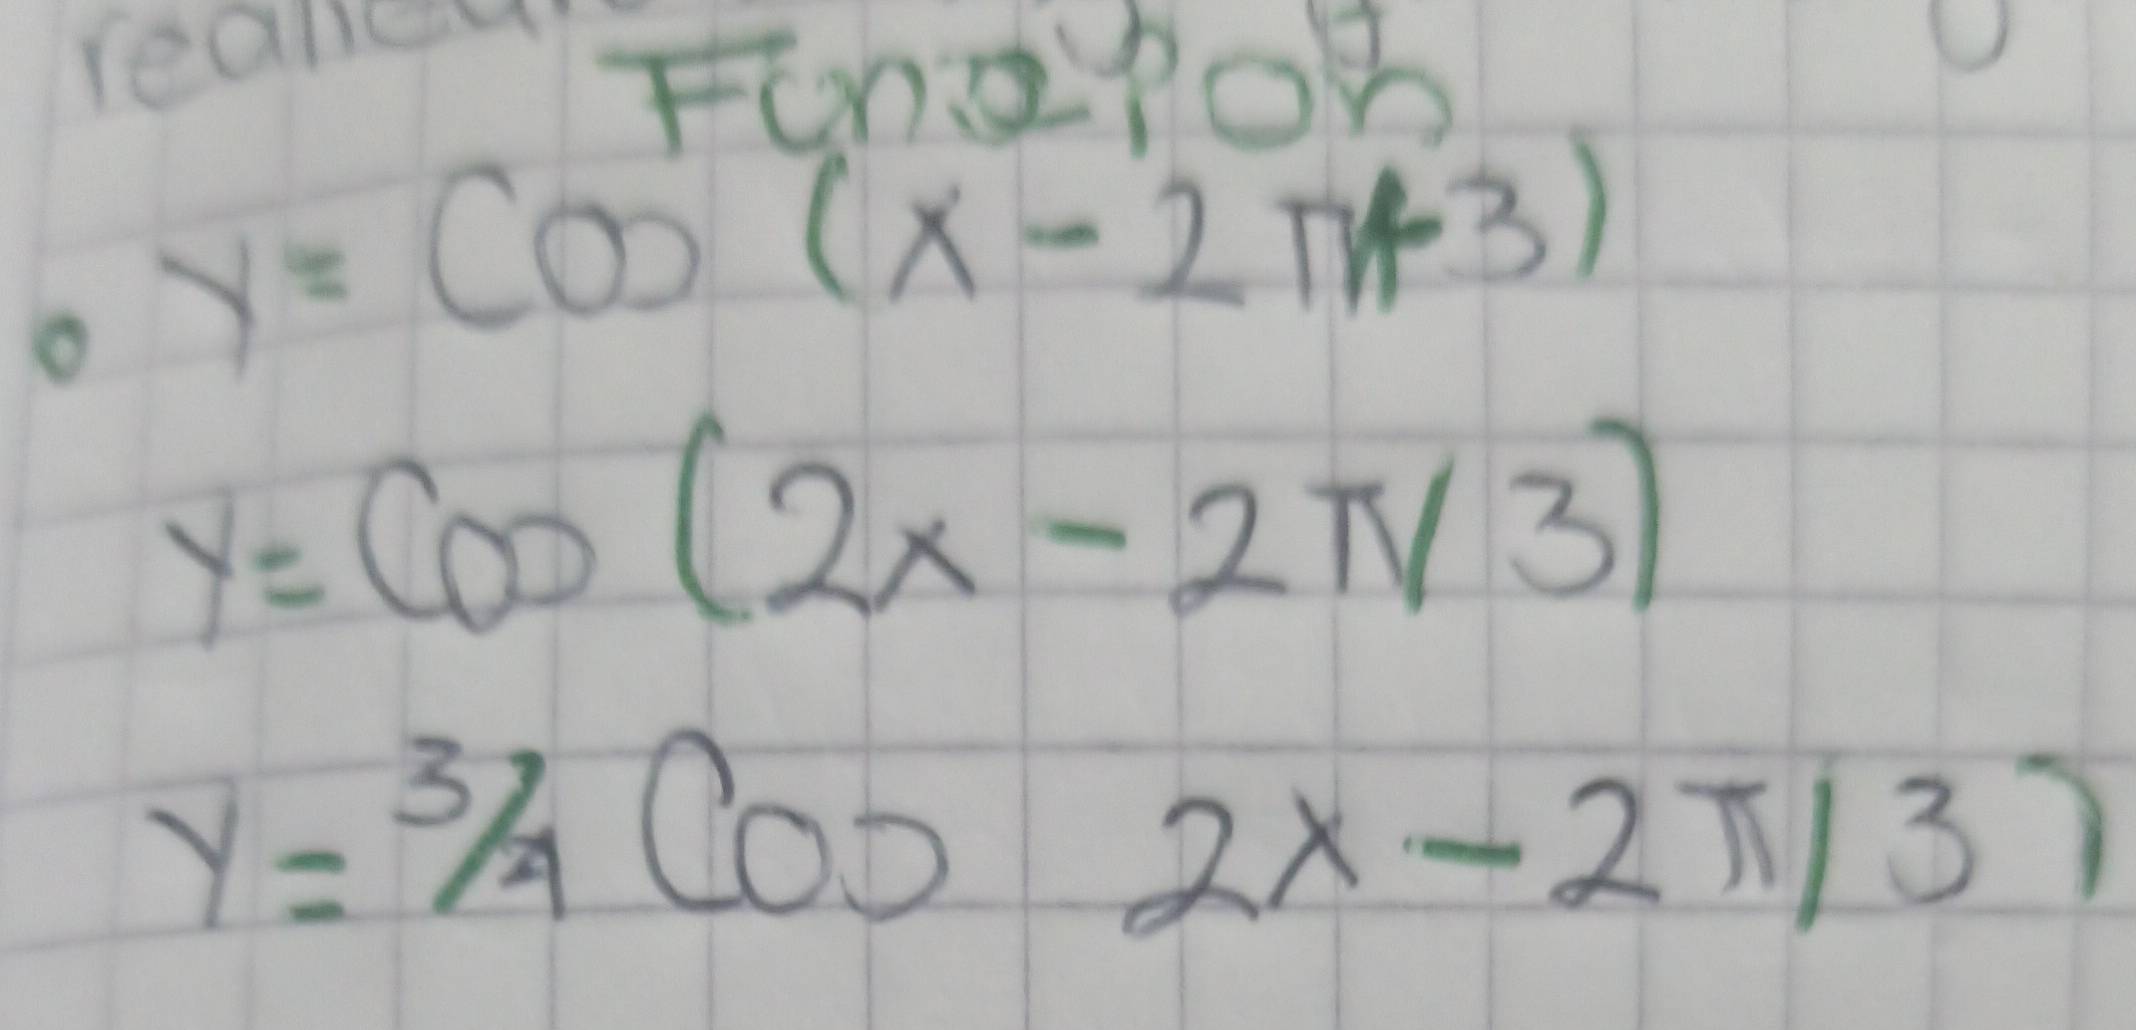 Función
y = Cos (x - 2π/3)
y = Cos (2x - 2π/3)
y = 3/4 Cos 2x - 2π/3)